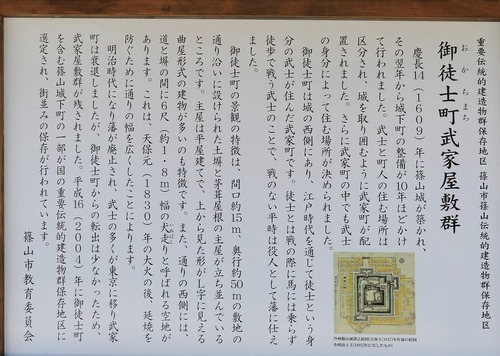 重要伝統的建造物群保存地区　篠山市篠山伝統的建造物群保存地区
おかちまち
御徒士町武家屋敷群
慶長14（1609）年に篠山城が築かれ、
その翌年から城下町の整備が10年ほどかけ
て行われました。武士と町人の住む場所は
区分され、城を取り囲むように武家町が配
置されました。さらに武家町の中でも武士
の身分によって住む場所が決められました。
御徒士町は城の西側にあり、江戸時代を通じて徒士という身
分の武士が住んだ武家町です。徒士とは戦の際に馬には乗らず
徒歩で戦う武士のことで、戦のない平時は役人として藩に仕え
ました。
御徒士町の景観の特徴は、間口約15m、奥行約50mの敷地の
通り沿いに設けられた土塀と茅葺屋根の主屋が立ち並んでいる
ところです。主屋は平屋建てで、上から見た形がL字に見える
曲屋形式の建物が多いのも特徴です。また、通りの西側には、
道と塀の間に6尺（約1.8m）幅の犬走りと呼ばれる空地が
あります。これは、天保元（1830）年の大火の後、延焼を
防ぐために通りの幅を広くしたことによります。
明治時代になり藩が廃止され、武士の多くが東京に移り武家
町は衰退しましたが、御徒士町からの転出は少なかったため、
武家屋敷群が残されました。平成16（2004）年に御徒士町
を含む篠山城下町の一部が国の重要伝統的建造物群保存地区に
選定され、街並みの保存が行われています。
篠山市教育委員会